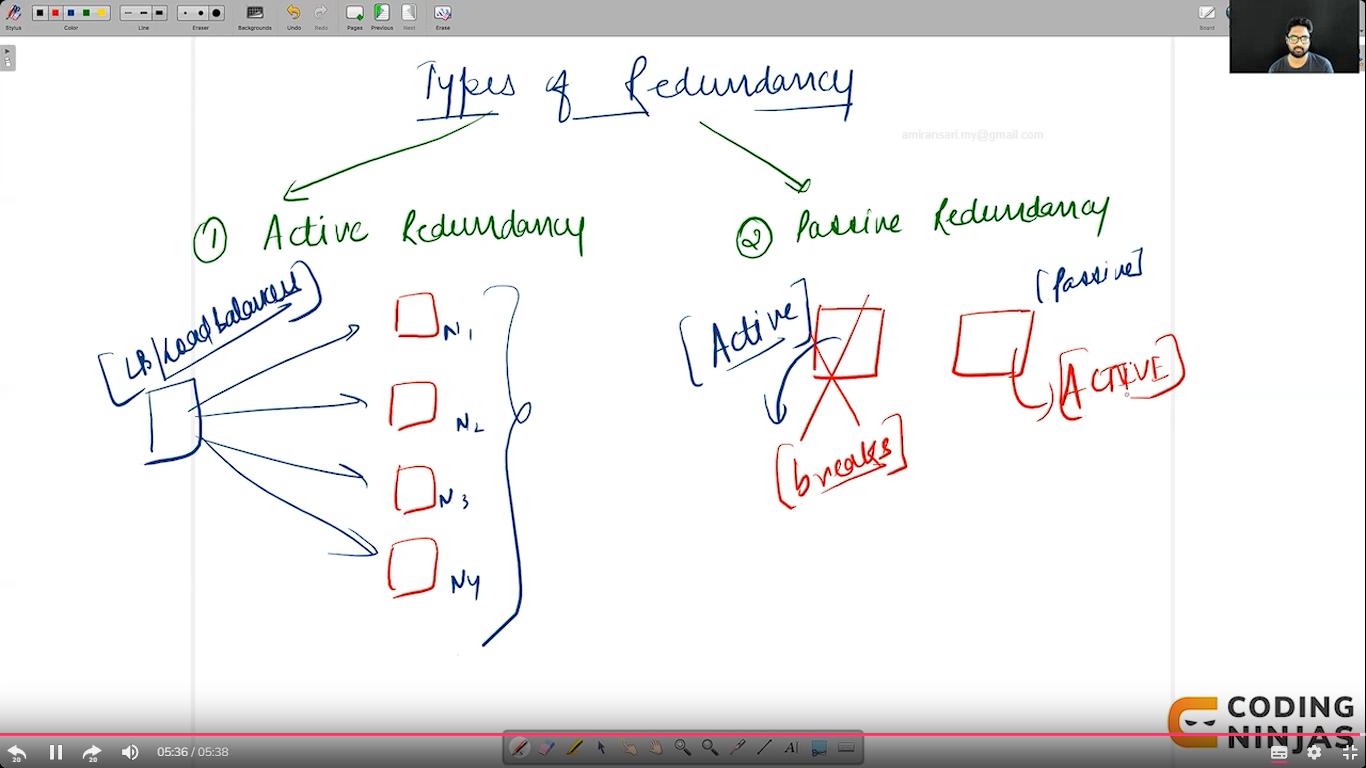 Stylus
Color
Line
Eraser
Backgrounds
Undo
Redo
Pages
Previous
Next
Erase
Board
Types of Redundancy
amiransari.my@gmail.com
① Active Redundancy
② Passive Redundancy
[LB/Load balancers]
N1
N2
N3
N4
[Active]
[Passive]
[ACTIVE]
[breaks]
CODING
NINJAS
20
20
05:36 / 05:38